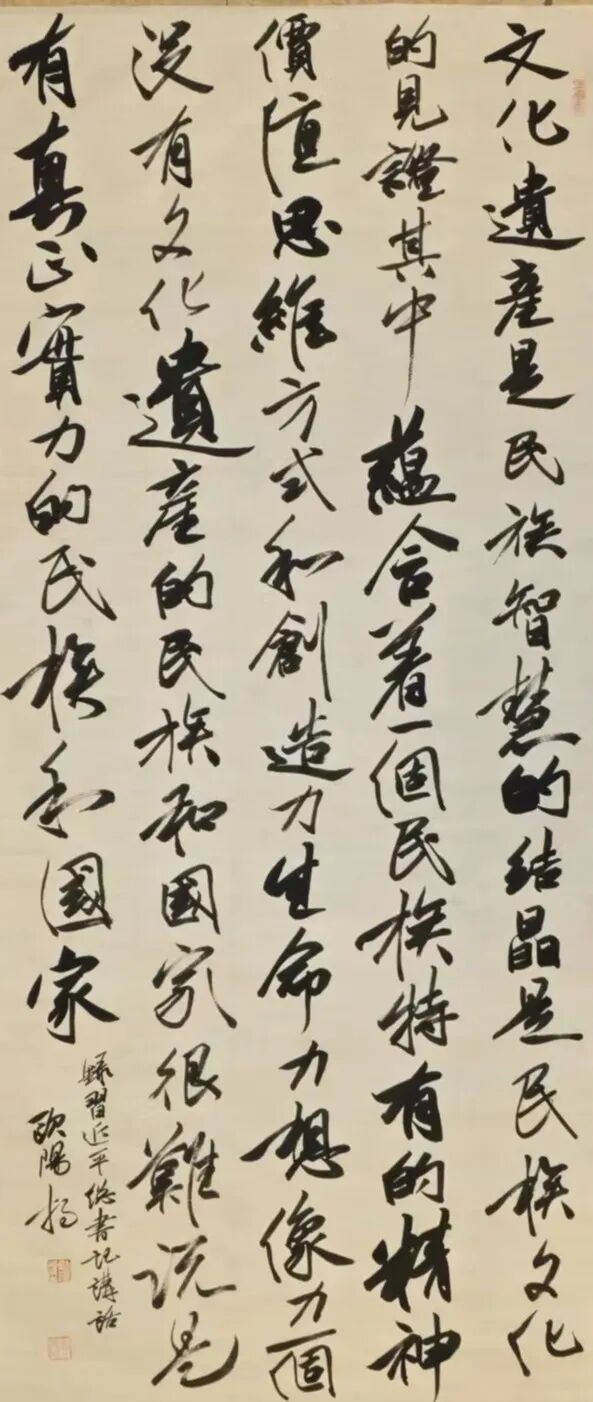 文化遺產是民族智慧的结晶是民族文化
的見證其中蘊含着一個民族特有的精神
價值思維方式和創造力生命力想像力一個
没有文化遺產的民族和國家很難説是
有真正實力的民族和國家
録習近平總書記講話
歐陽